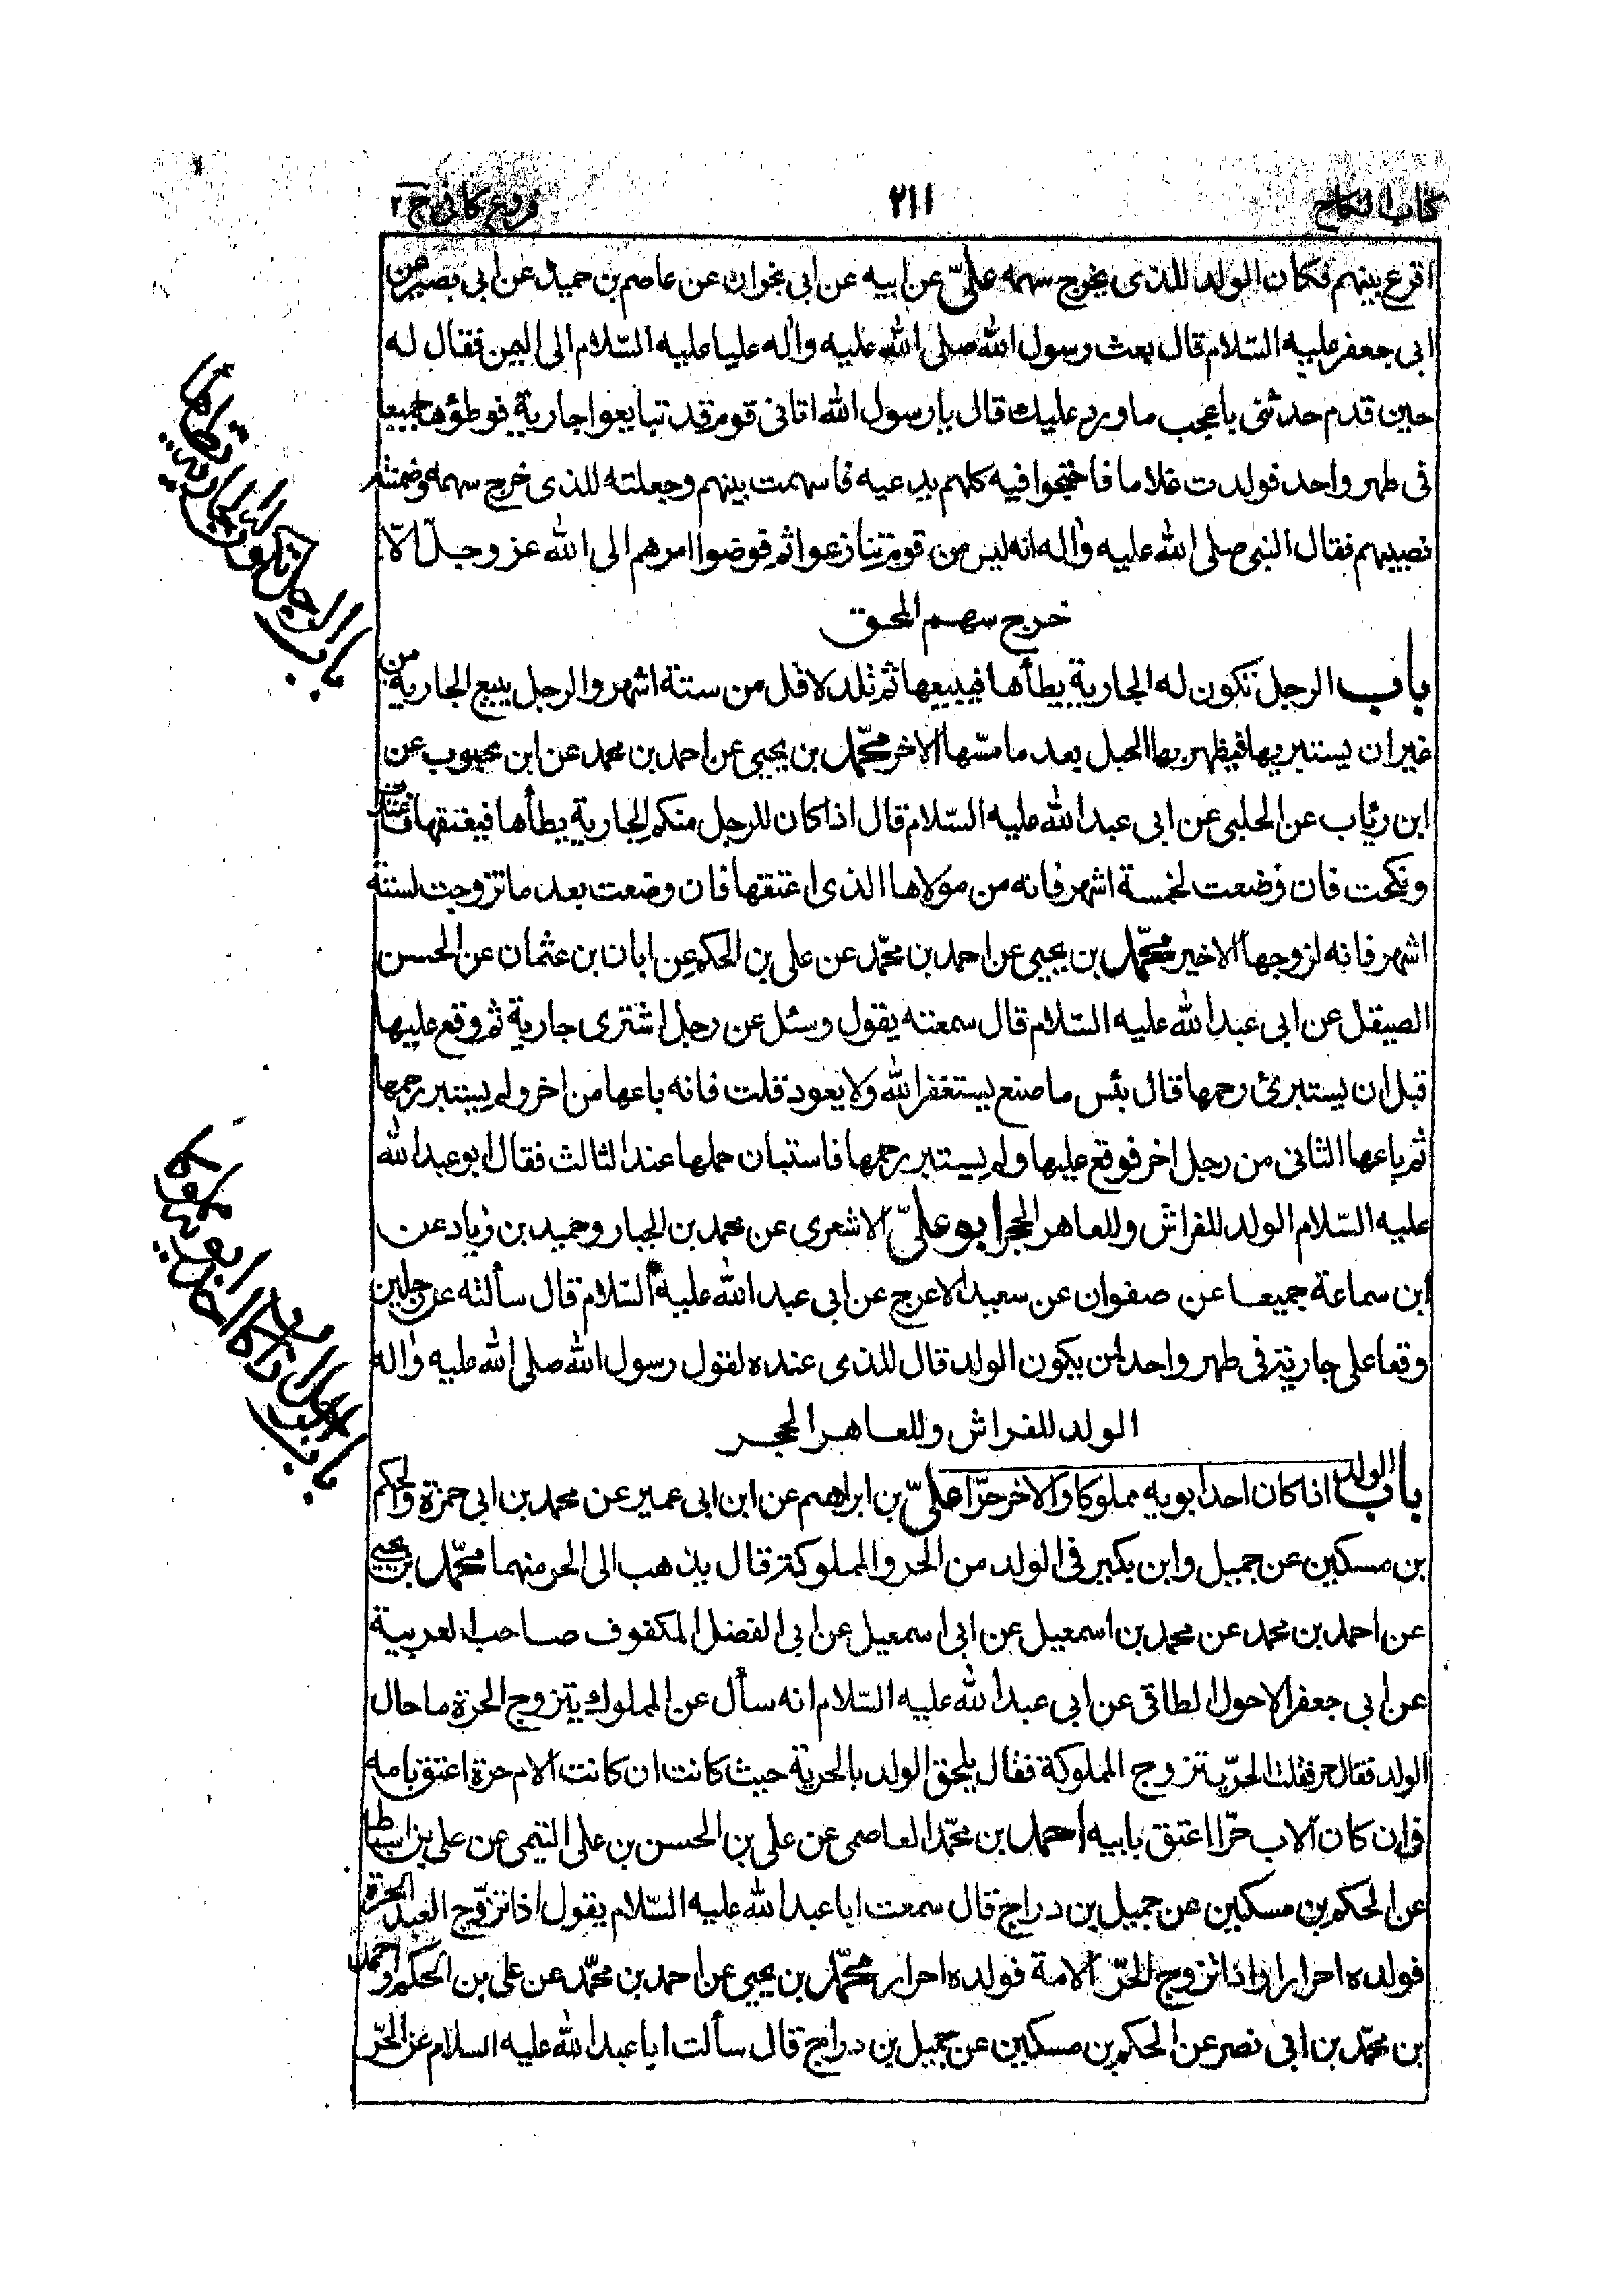 كتاب النكاح
٢١١
فروع كافى ج ٢
اقرع بينهم فكان الولد للذى يخرج سهمه علىّ عن ابيه عن ابى نجران عن عاصم بن حميد عن ابى بصير عن
ابى جعفر عليه السّلام قال بعث رسول الله صلى الله عليه واله عليا عليه السّلام الى اليمن فقال له
حين قدم حدثنى باعجب ما ورد عليك قال يا رسول الله اتانى قوم قد تبايعوا جارية فوطؤها جميعا
فى طهر واحد فولدت غلاما فاحتجوا فيه كلهم يدعيه فاسهمت بينهم وجعلته للذى خرج سهمه وضمنته
نصيبهم فقال النبى صلى الله عليه واله انه ليس من قوم تنازعوا ثم فوضوا امرهم الى الله عز وجلّ الّا
خرج سهم المحق
باب الرجل تكون له الجارية يطأها فيبيعها ثم تلد لاقل من ستة اشهر والرجل يبيع الجارية من
غير ان يستبريها فيظهر بها الحبل بعد ما مسّها الاخر محمّد بن يحيى عن احمد بن محمد عن ابن محبوب عن
ابن رئاب عن الحلبى عن ابى عبد الله عليه السّلام قال اذا كان للرجل منكم الجارية يطأها فيعتقها فاعتدت
ونكحت فان وضعت لخمسة اشهر فانه من مولاها الذى اعتقها فان وضعت بعد ما تزوجت لستة
اشهر فانه لزوجها الاخير محمّد بن يحيى عن احمد بن محمّد عن على بن الحكم عن ابان بن عثمان عن الحسن
الصيقل عن ابى عبد الله عليه السّلام قال سمعته يقول وسئل عن رجل اشترى جارية ثم وقع عليها
قبل ان يستبرئ رحمها قال بئس ما صنع يستغفر الله ولا يعود قلت فانه باعها من اخر ولم يستبر رحمها
ثم باعها الثانى من رجل اخر فوقع عليها ولم يستبر رحمها فاستبان حملها عند الثالث فقال ابو عبد الله
عليه السّلام الولد للفراش وللعاهر الحجر ابو علىّ الاشعرى عن محمد بن الجبار وحميد بن زياد عن
ابن سماعة جميعا عن صفوان عن سعيد الاعرج عن ابى عبد الله عليه السّلام قال سألته عن رجلين
وقعا على جارية فى طهر واحد لمن يكون الولد قال للذى عنده لقول رسول الله صلى الله عليه واله
الولد للفراش وللعاهر الحجر
باب الولد اذا كان احد ابويه مملوكا والاخر حرّا علىّ بن ابراهيم عن ابن ابى عمير عن محمد بن ابى حمزة والحكم
بن مسكين عن جميل وابن بكير فى الولد من الحر والمملوكة قال يذهب الى الحر منهما محمّد بن يحيى
عن احمد بن محمد عن محمد بن اسمعيل عن ابى اسمعيل عن ابى الفضل المكفوف صاحب العربية
عن ابى جعفر الاحول الطاقى عن ابى عبد الله عليه السّلام انه سأل عن المملوك يتزوج الحرة ما حال
الولد فقال حر فقلت الحرّ يتزوج المملوكة فقال يلحق الولد بالحرية حيث كانت ان كانت الام حرة اعتق بامه
وان كان الاب حرّا اعتق بابيه احمد بن محمّد العاصمى عن على بن الحسن بن على التيمى عن على بن اسباط
عن الحكم بن مسكين عن جميل بن دراج قال سمعت ابا عبد الله عليه السّلام يقول اذا تزوّج العبد الحرة
فولده احرار واذا تزوج الحرّ الامة فولده احرار محمّد بن يحيى عن احمد بن محمّد عن على بن الحكم واحمد
بن محمّد بن ابى نصر عن الحكم بن مسكين عن جميل بن دراج قال سألت ابا عبد الله عليه السلام عن الحرّ
باب الرجل تكون له الجارية يطأها
باب الولد اذا كان احد ابويه مملوكا